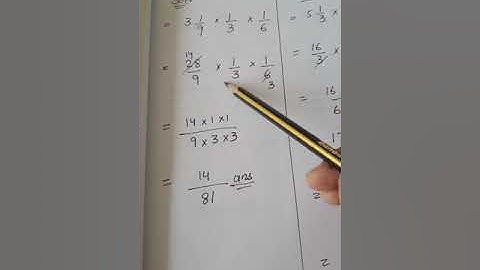 = 3 1/9 × 1/3 × 1/6
14
= 28/9 × 1/3 × 1/6
3
= 14 × 1 × 1 / 9 × 3 × 3
= 14/81 ans
5 1/3 ×
= 16/3 ×
= 16/6